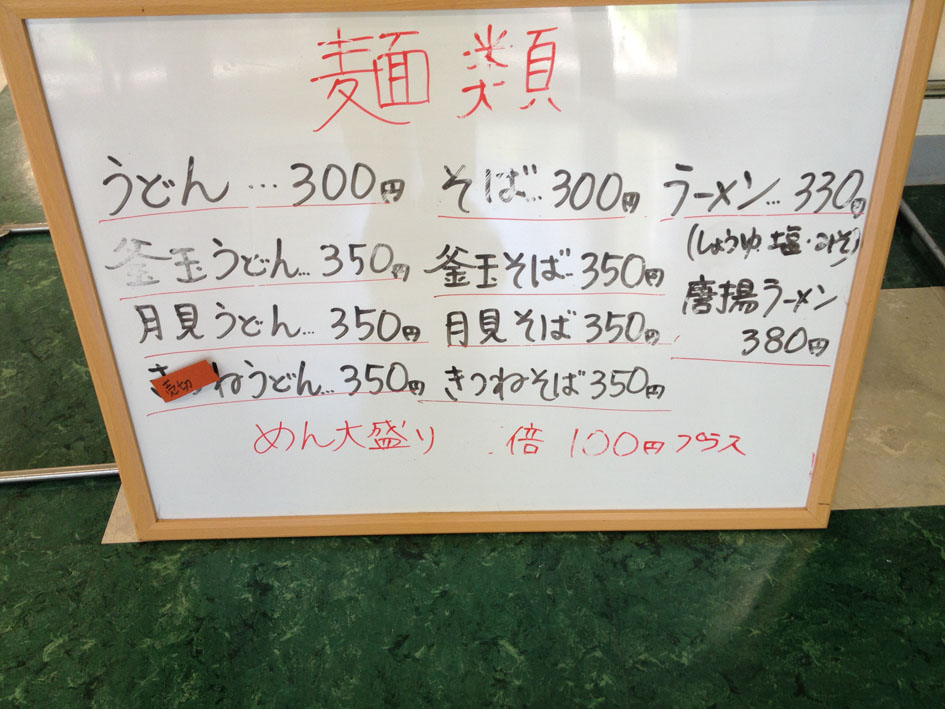 麺類
うどん…300円 そば…300円 ラーメン…330円
(しょうゆ・塩・みそ)
釜玉うどん…350円 釜玉そば…350円
唐揚ラーメン
月見うどん…350円 月見そば350円
380円
売切
きつねうどん…350円 きつねそば350円
めん大盛り 倍 100円プラス